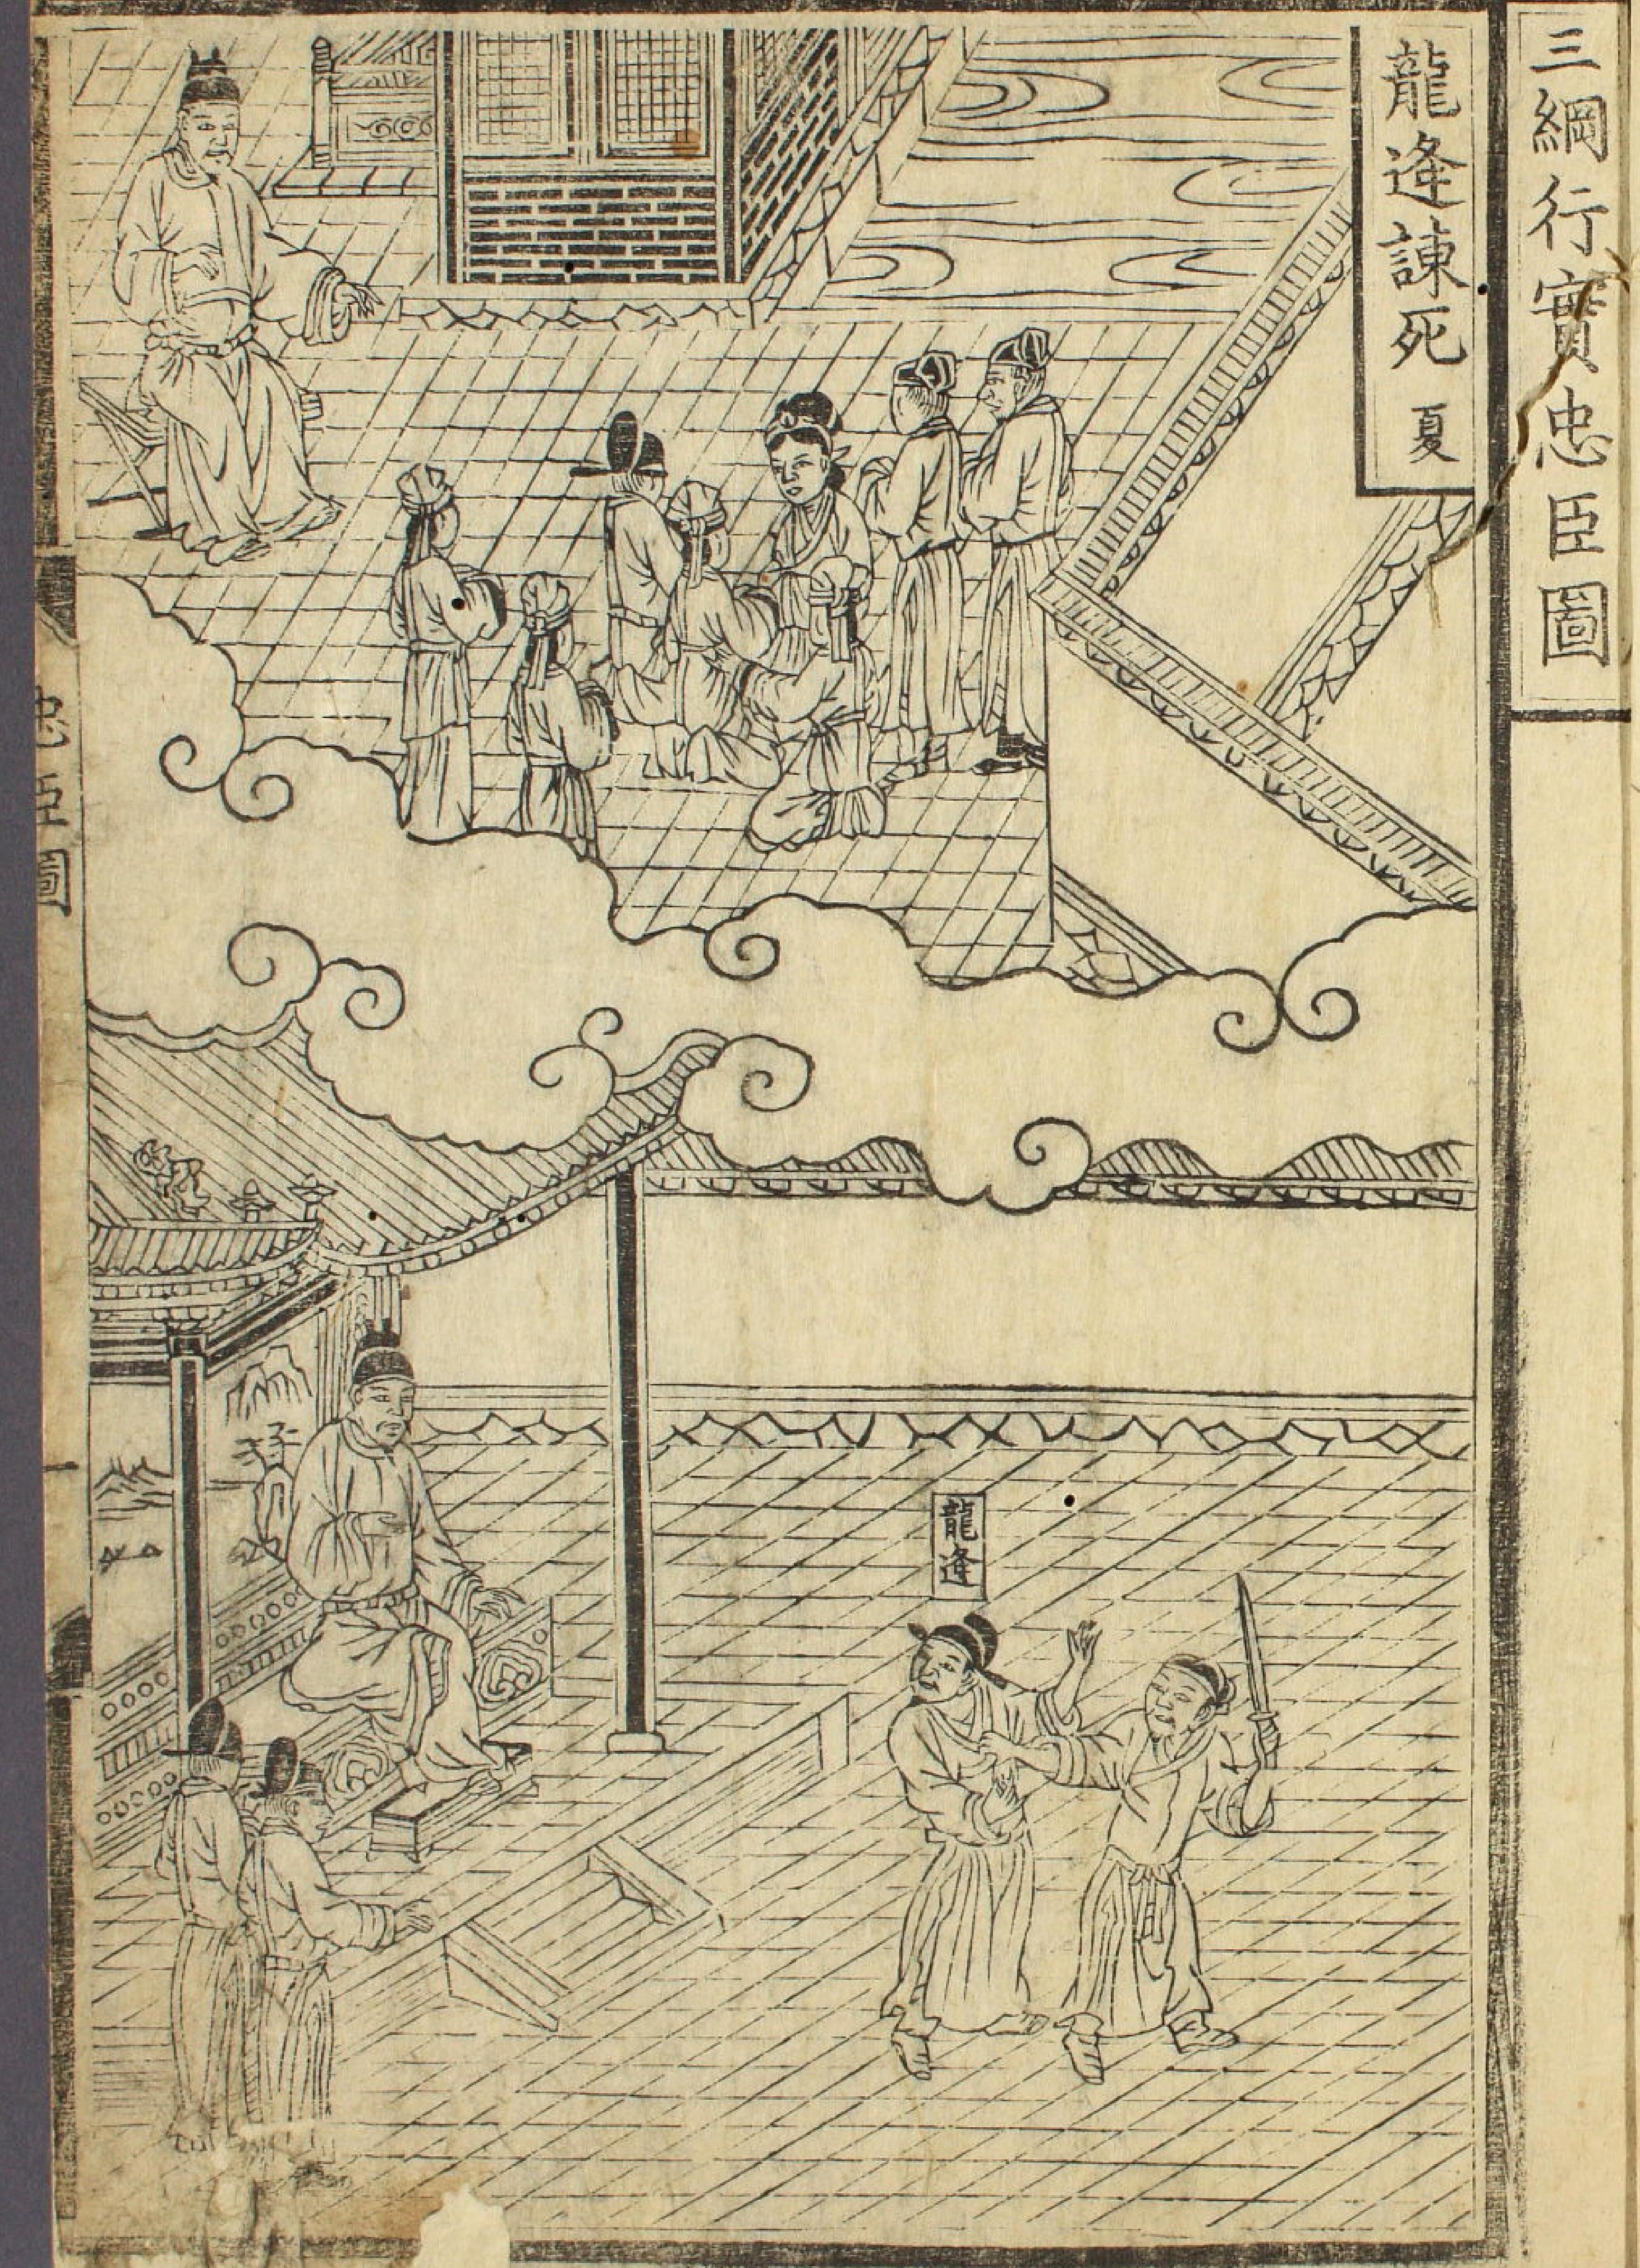 三綱行實忠臣圖
龍逄諫死 夏
龍逄
忠臣圖
一